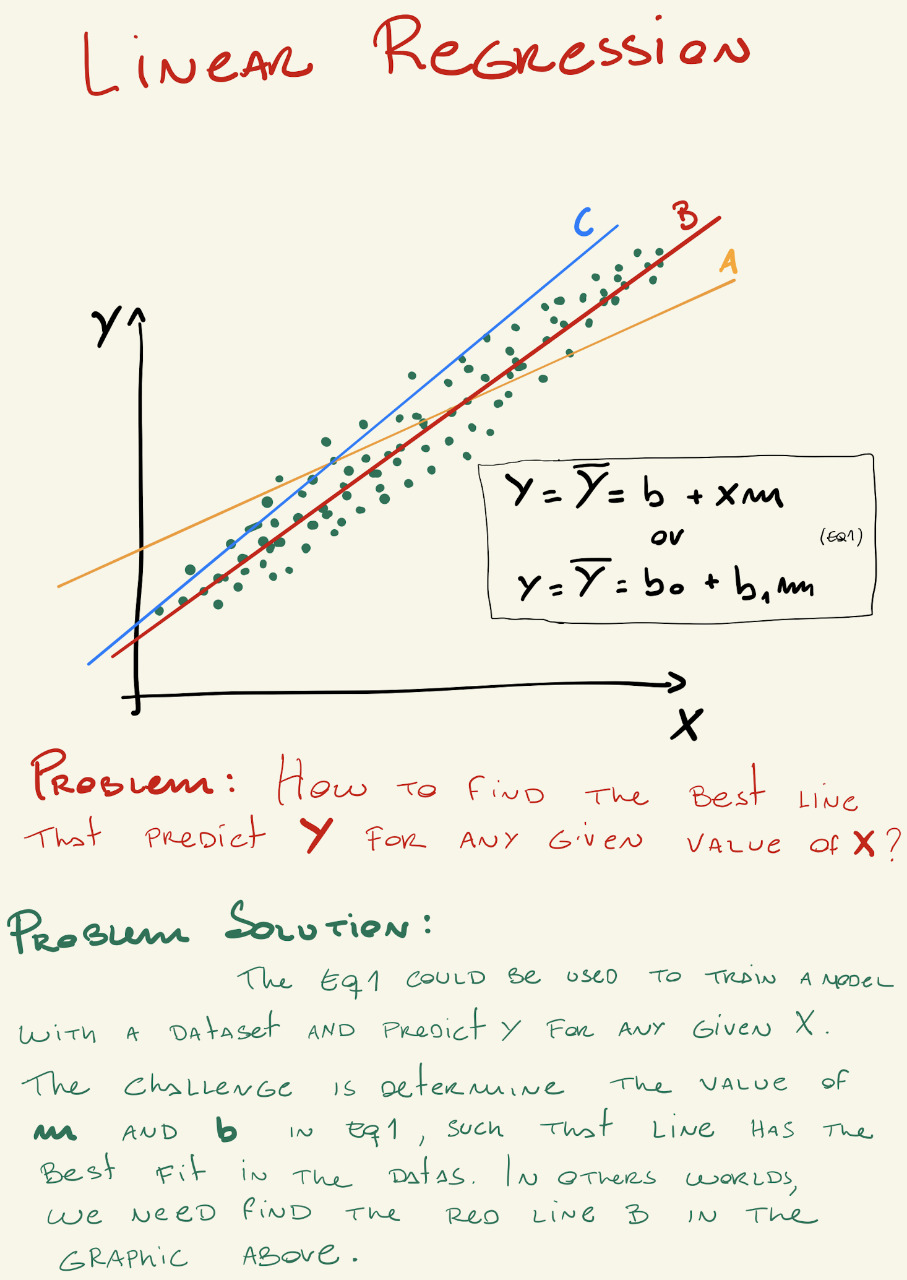 LINEAR REGRESSION
C
B
A
Y
y = ȳ = b + xm
or
(EQ1)
y = ȳ = b₀ + b₁m
X
PROBLEM: HOW TO FIND THE BEST LINE
THAT PREDICT Y FOR ANY GIVEN VALUE OF X?
PROBLEM SOLUTION:
THE EQ1 COULD BE USED TO TRAIN A MODEL
WITH A DATASET AND PREDICT Y FOR ANY GIVEN X.
THE CHALLENGE IS DETERMINE THE VALUE OF
m AND b IN EQ1, SUCH THAT LINE HAS THE
BEST FIT IN THE DATAS. IN OTHERS WORLDS,
WE NEED FIND THE RED LINE B IN THE
GRAPHIC ABOVE.